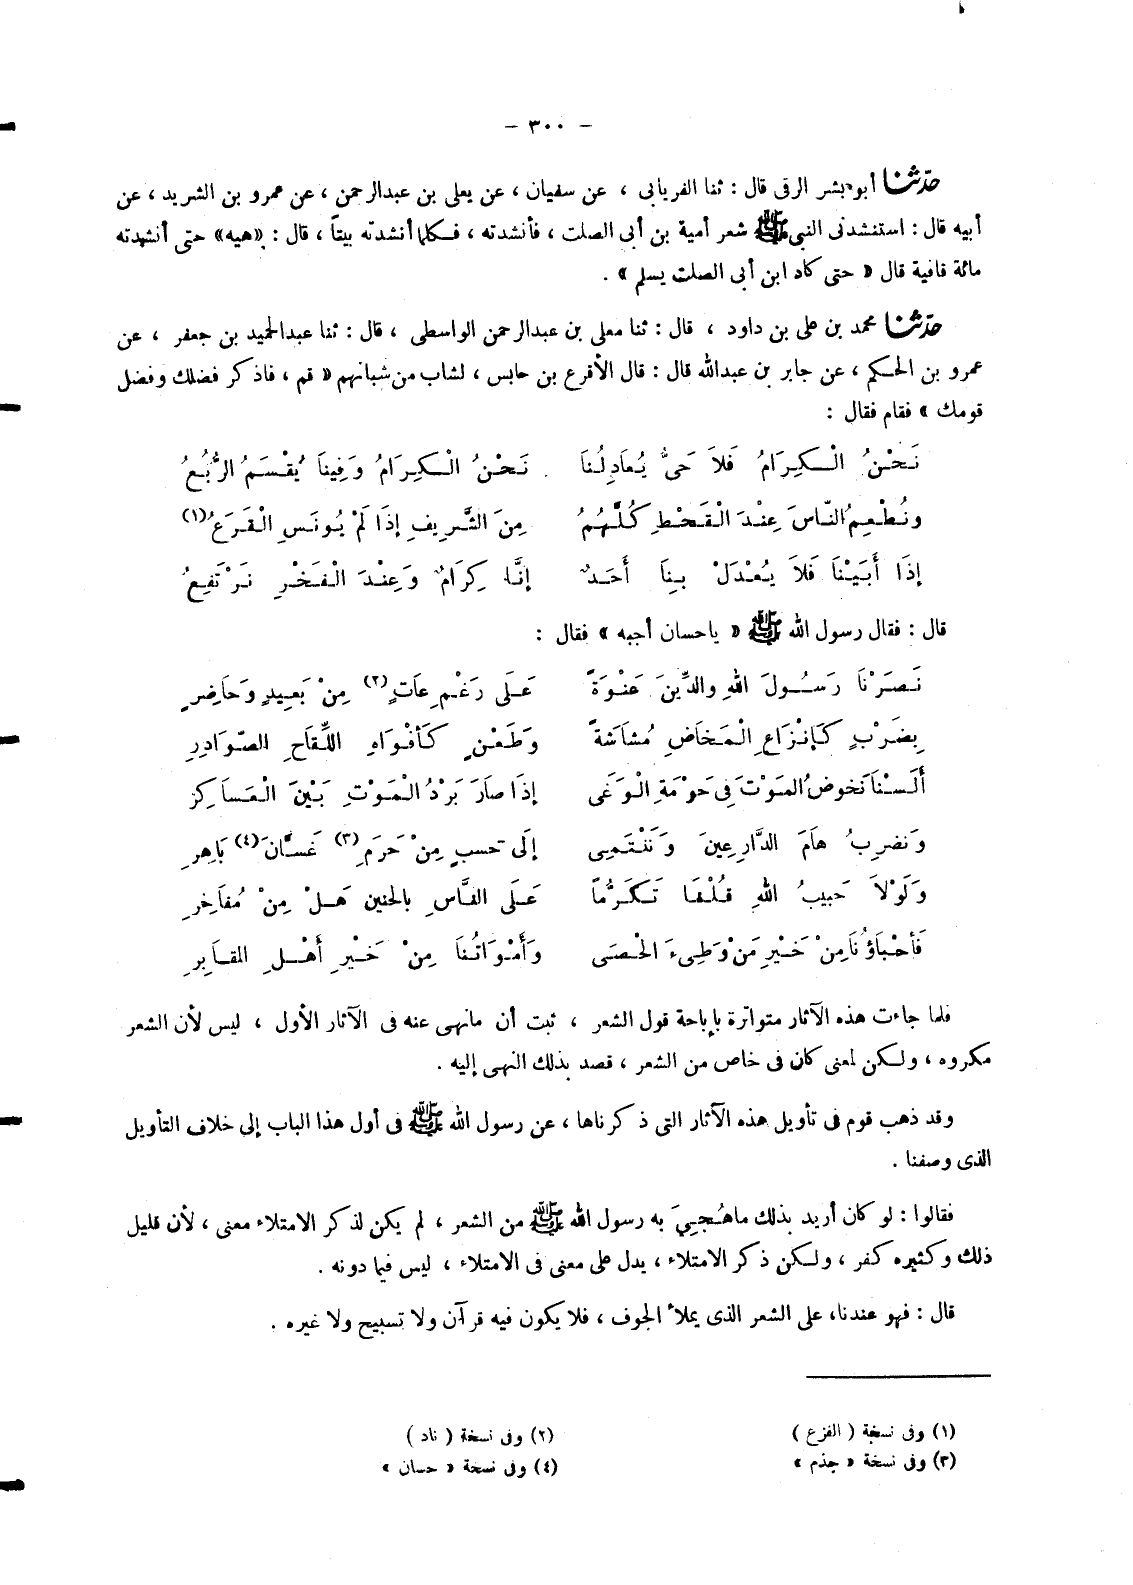 — ٣٠٠ —
حدّثنا أبو بشر الرقى قال : ثنا الفريابى ، عن سفيان ، عن يعلى بن عبدالرحمن ، عن عمرو بن الشريد ، عن
أبيه قال : استنشدنى النبى ﷺ شعر أمية بن أبى الصلت ، فأنشدته ، فكلما أنشدته بيتاً ، قال : «هيه» حتى أنشدته
مائة قافية قال « حتى كاد ابن أبى الصلت يسلم » .
حدّثنا محمد بن على بن داود ، قال : ثنا معلى بن عبدالرحمن الواسطى ، قال : ثنا عبدالحميد بن جعفر ، عن
عمرو بن الحكم ، عن جابر بن عبدالله قال : قال الأقرع بن حابس ، لشاب من شبانهم « قم ، فاذكر فضلك وفضل
قومك » فقام فقال :
نَحْنُ الْكِرَامُ فَلاَ حَىٌّ يُعَادِلُنَا نَحْنُ الْكِرَامُ وَفِينَا يُقْسَمُ الرُّبُعُ
ونُطْعِمُ النَّاسَ عِنْدَ الْقَحْطِ كُلَّهُمُ مِنَ الشَّرِيفِ إِذَا لَمْ يُونَسِ الْقَرَعُ (١)
إِذَا أَبَيْنَا فَلاَ يُعْدَلْ بِنَا أَحَدٌ إِنَّا كِرَامٌ وَعِنْدَ الْفَخْرِ نَرْتَفِعُ
قال : فقال رسول الله ﷺ « ياحسان أجبه » فقال :
نَصَرْنَا رَسُولَ اللهِ والدِّينَ عَنْوَةً عَلَى رَغْمِ عاتٍ (٢) مِنْ بَعِيدٍ وَحَاضِرٍ
بِضَرْبٍ كَإِنْزَاعِ الْمَخَاضِ مُشَاشَةً وَطَعْنٍ كَأَفْوَاهِ اللِّقَاحِ الصّوَادِرِ
أَلَسْنَا نَخُوضُ المَوْتَ فِى حَوْمَةِ الْوَغَى إِذَا صَارَ بَرْدُ الْمَوْتِ بَيْنَ الْعَسَاكِرْ
وَنضرِبُ هَامَ الدَّارِعِينَ وَنَنْتَمِى إِلَى حسبٍ مِنْ حَرَمِ (٣) غَسَّانَ (٤) بَاهِرِ
وَلَوْلاَ حَبِيبُ اللهِ قُلْنَا تَكَرُّمًا عَلَى النَّاسِ بِالحنين هَلْ مِنْ مُفَاخِرِ
فَأَحْبَاؤُنَا مِنْ خَيْرِ مَنْ وَطِىءَ الْحصَى وَأَمْوَاتُنَا مِنْ خَيْرِ أَهْلِ المقَابِرِ
فلما جاءت هذه الآثار متواترة بإباحة قول الشعر ، ثبت أن مانهى عنه فى الآثار الأول ، ليس لأن الشعر
مكروه ، ولكن لمعنى كان فى خاص من الشعر ، قصد بذلك النهى إليه .
وقد ذهب قوم فى تأويل هذه الآثار التى ذكرناها ، عن رسول الله ﷺ فى أول هذا الباب إلى خلاف التأويل
الذى وصفنا .
فقالوا : لو كان أريد بذلك ماهُجِيَ به رسول الله ﷺ من الشعر ، لم يكن لذكر الامتلاء معنى ، لأن قليل
ذلك وكثيره كفر ، ولكن ذكر الامتلاء ، يدل على معنى فى الامتلاء ، ليس فيما دونه .
قال : فهو عندنا، على الشعر الذى يملأ الجوف ، فلا يكون فيه قرآن ولا تسبيح ولا غيره .
(١) وفى نسخة ( الفزع ) (٢) وفى نسخة ( ناد )
(٣) وفى نسخة « جذم » (٤) وفى نسخة « حسان »